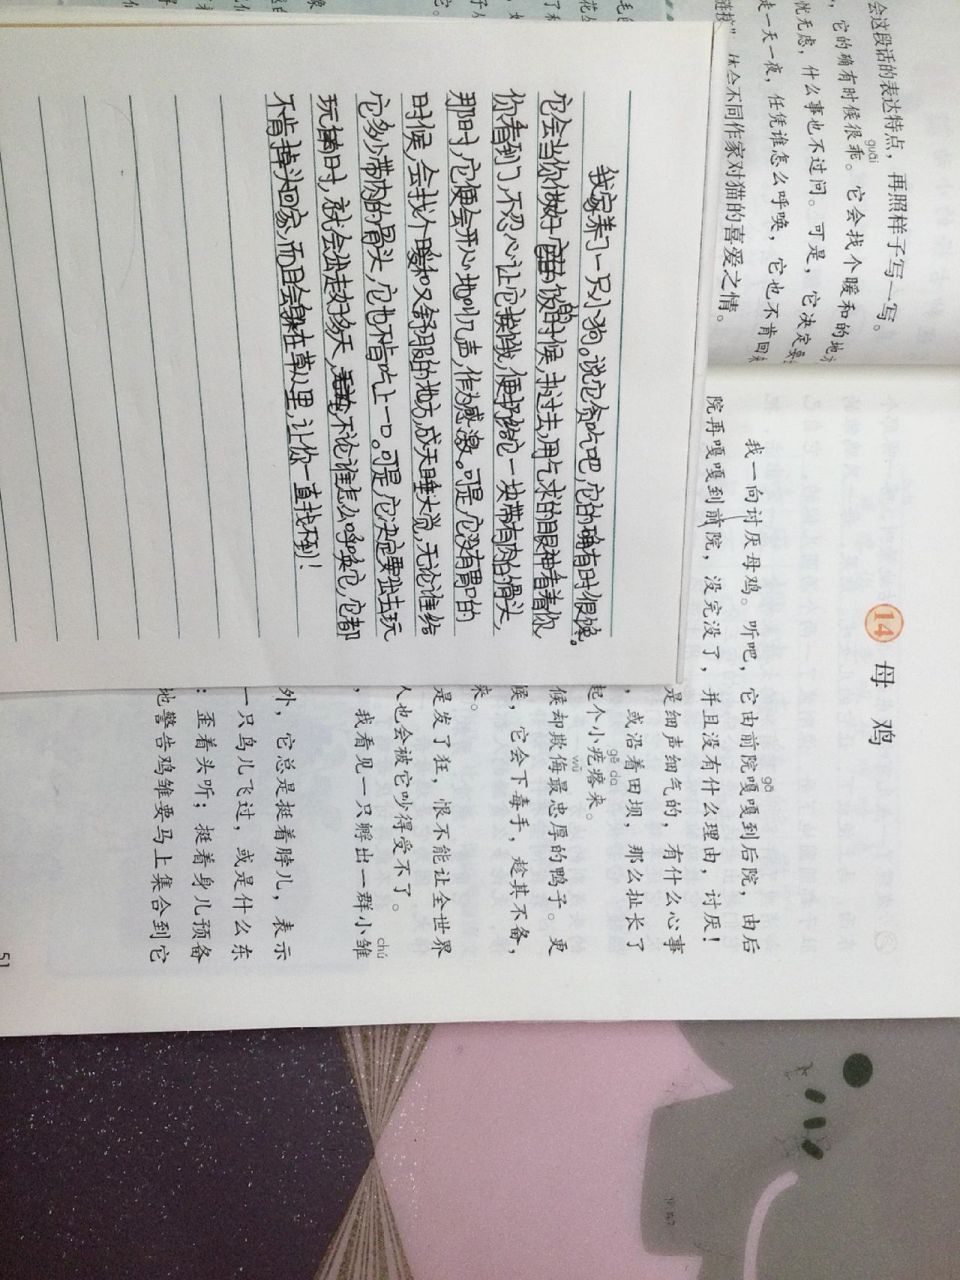 会这段话的表达特点，再照样子写一写。
guāi
，它的确有时候很乖。它会找个暖和的地
忧无虑，什么事也不过问。可是，它决定要
走一天一夜，任凭谁怎么呼唤，它也不肯回
链接”，体会不同作家对猫的喜爱之情。
我家养了一只小狗。说它贪吃吧，它的确有时很馋。
它会当你做好饭的时候，扑过去，用乞求的眼神看着你
你看到了，不忍心让它挨饿，便扔给它一块带有肉的骨头，
那时，它便会开心地叫几声，作为感激。可是，它没有胃口的
时候，会找个暖和又舒服的地方，成天睡大觉，无论谁给
它多少带肉的骨头，它也不肯吃上一口。可是，它决定要出去玩
玩时，就会出走好多天，不论谁怎么呼唤它，它都
不肯掉头回家，而且会躲在草丛里，让你一直找不到！
14 母鸡
我一向讨厌母鸡。听吧，它由前院嘎嘎到后院，由后
gā
院再嘎嘎到前院，没完没了，并且没有什么理由，讨厌！
是细声细气的，有什么心事
，或沿着田坝，那么扯长了
gē da
起个小疙瘩来。
wǔ
候却欺侮最忠厚的鸭子。更
候，它会下毒手，趁其不备，
来。
是发了狂，恨不能让全世界
人也会被它吵得受不了。
chú
，我看见一只孵出一群小雏
外，它总是挺着脖儿，表示
一只鸟儿飞过，或是什么东
：歪着头听；挺着身儿预备
地警告鸡雏要马上集合到它
51